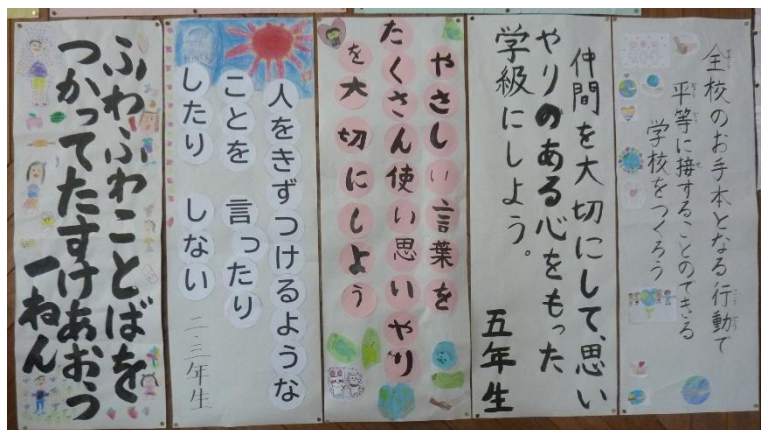 全校のお手本となる行動で
平等に接することのできる
学校をつくろう
仲間を大切にして、思い
やりのある心をもった
学級にしよう。
五年生
やさしい言葉を
たくさん使い思いやり
を大切にしよう
人をきずつけるような
ことを 言ったり
したり しない
二・三年生
ふわふわことばを
つかってたすけあおう
一ねん